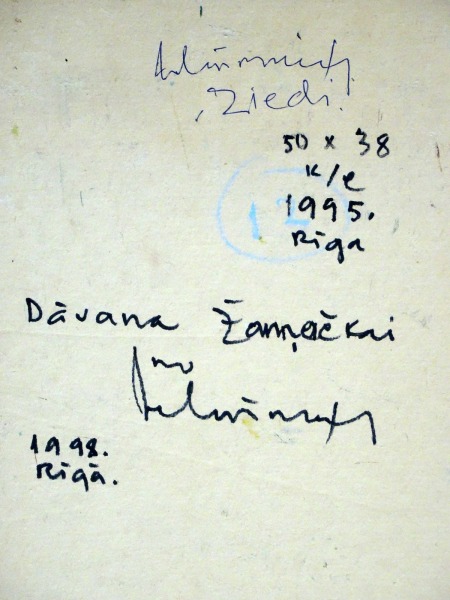 "Ziedi"
50 x 38
K/e
12
1995.
Rīga
Dāvana Žanņočkai
no
1998.
Rīgā.